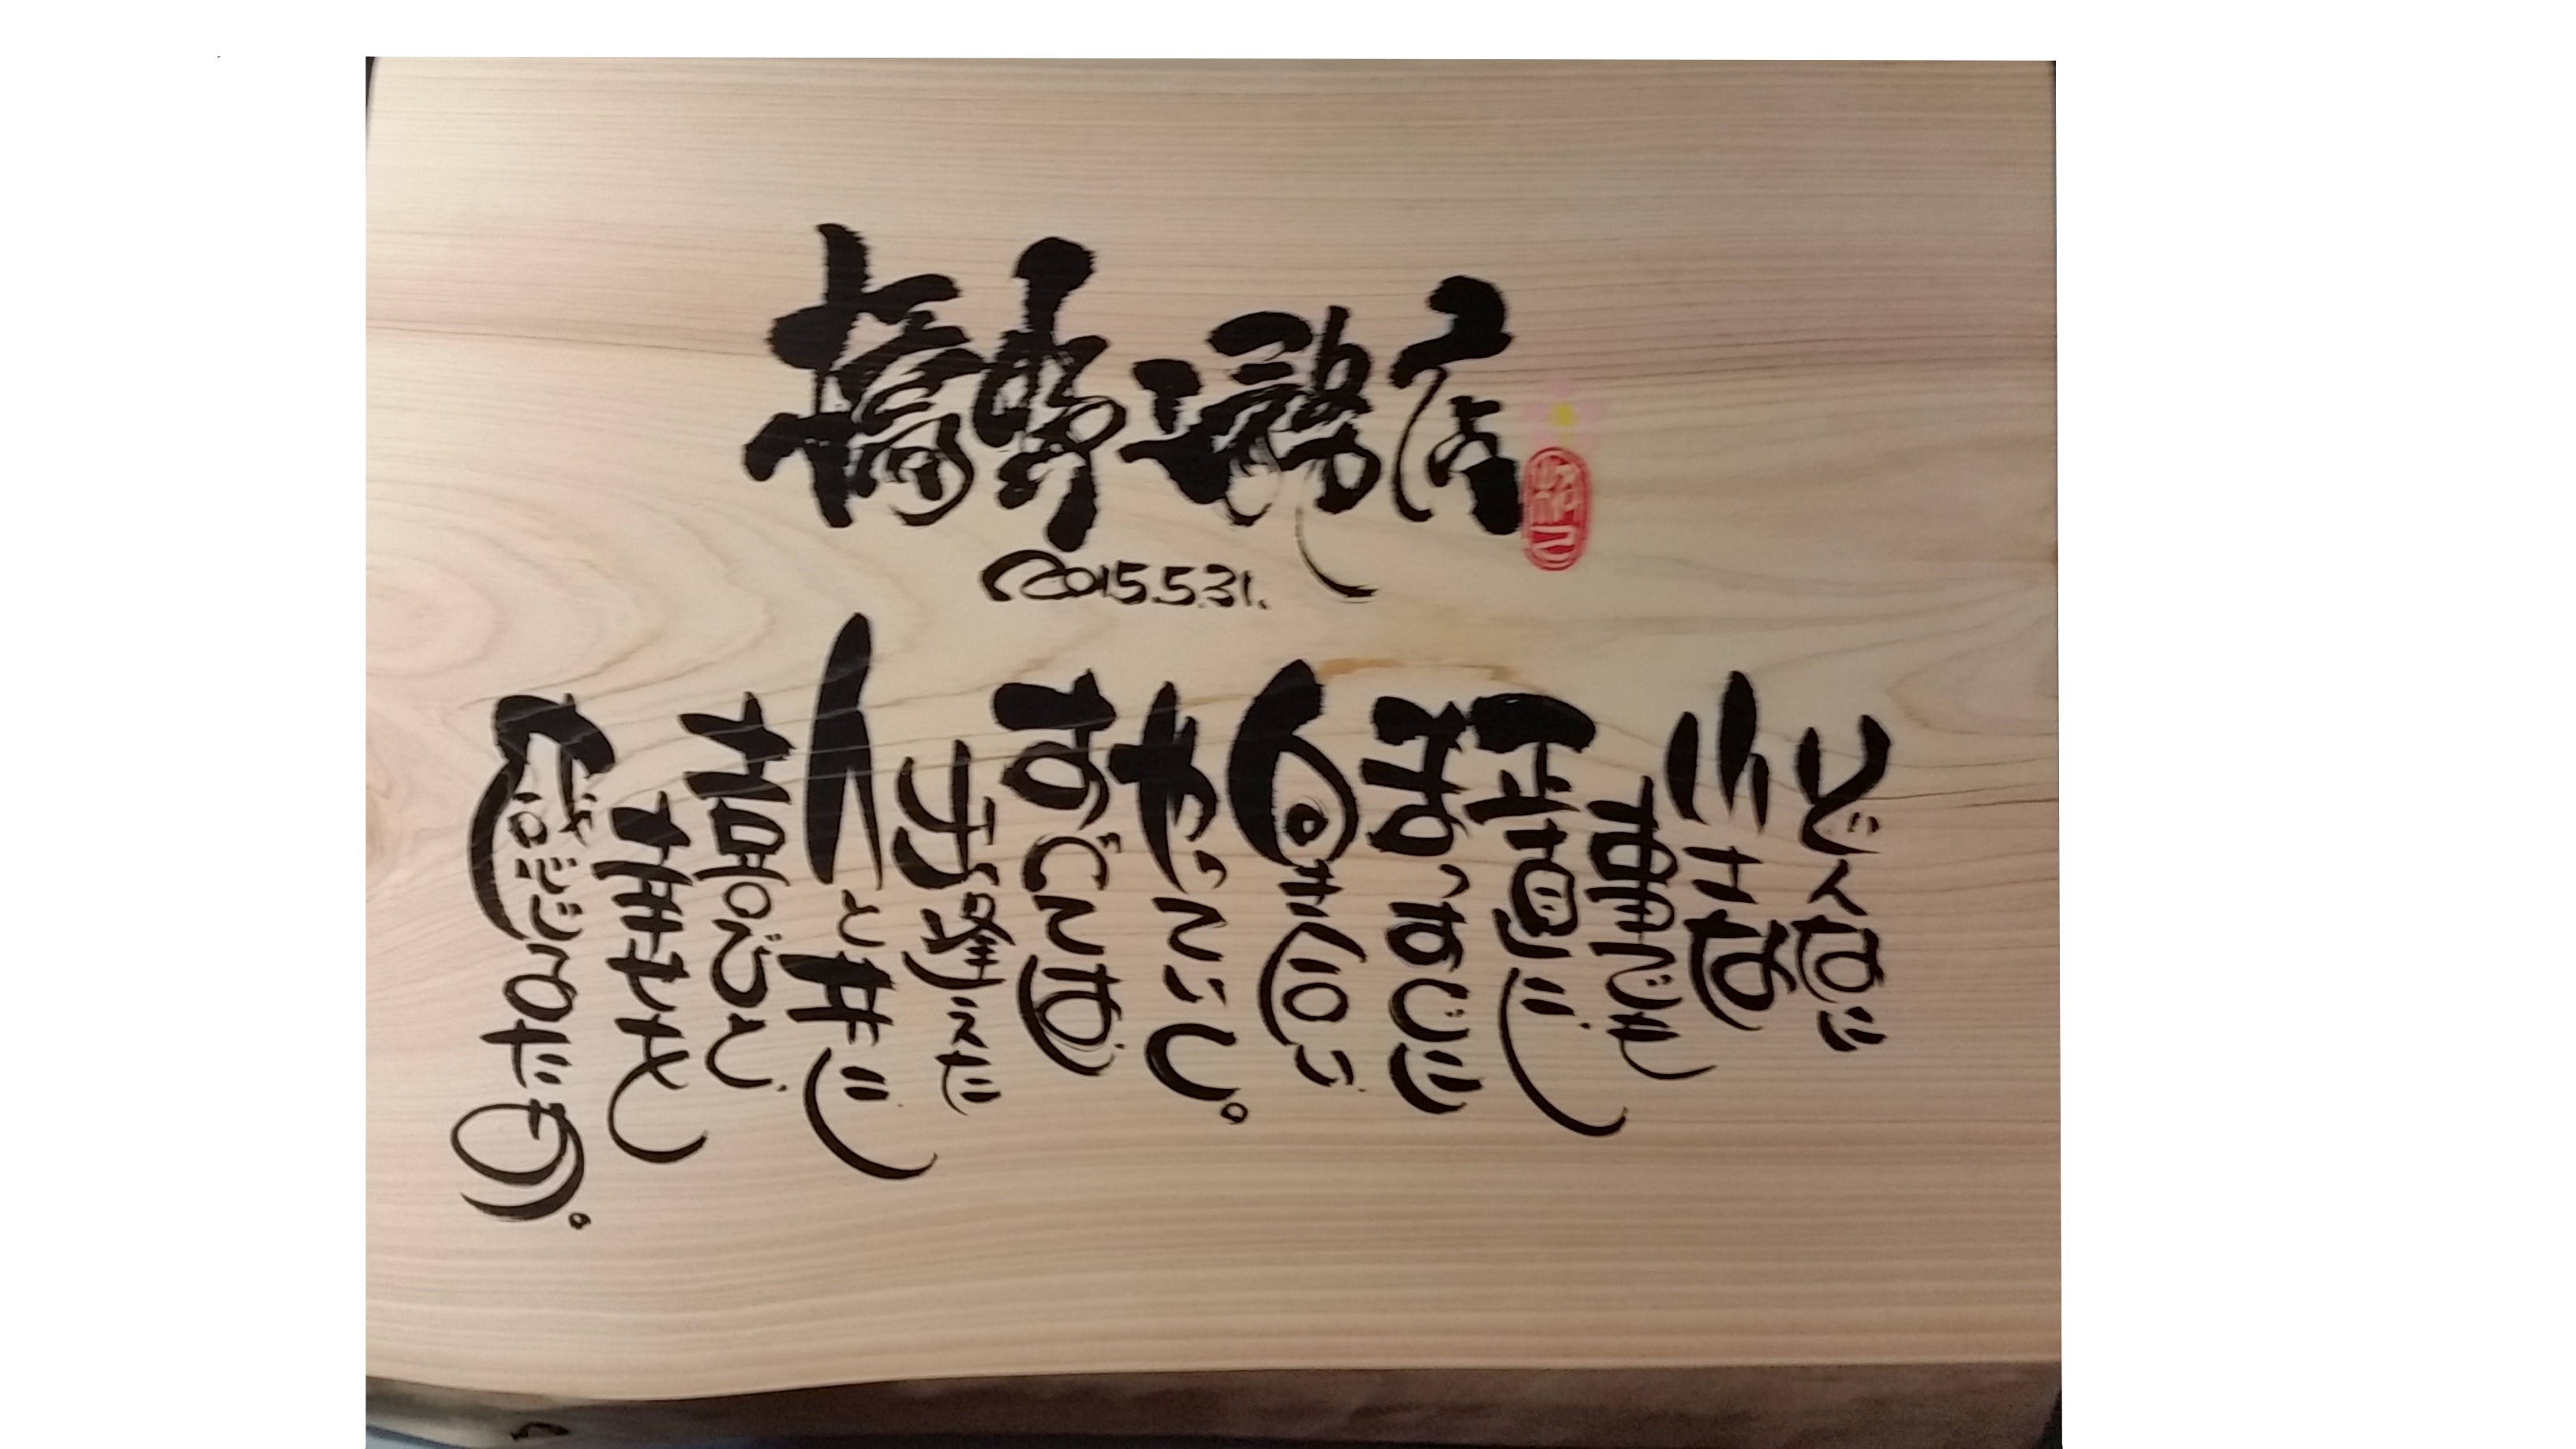 橋野工務店
2015.5.31.
どんなに
小さな
事でも
正直に
真っすぐに
向き合い
やっていく。
すべては
出逢えた
人と共に
喜びと
幸せを
感じるため。